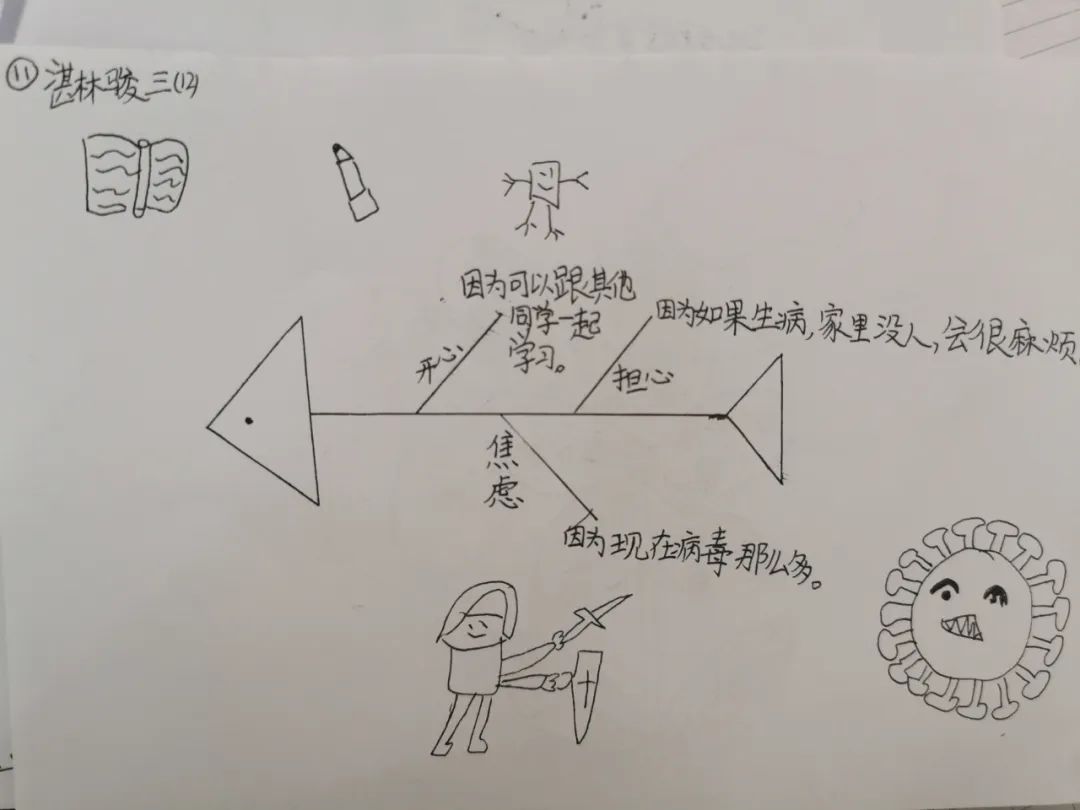 ⑪ 湛林骏 三(12)
因为可以跟其他
同学一起
学习。
开心
因为如果生病,家里没人,会很麻烦。
担心
焦
虑
因为现在病毒那么多。